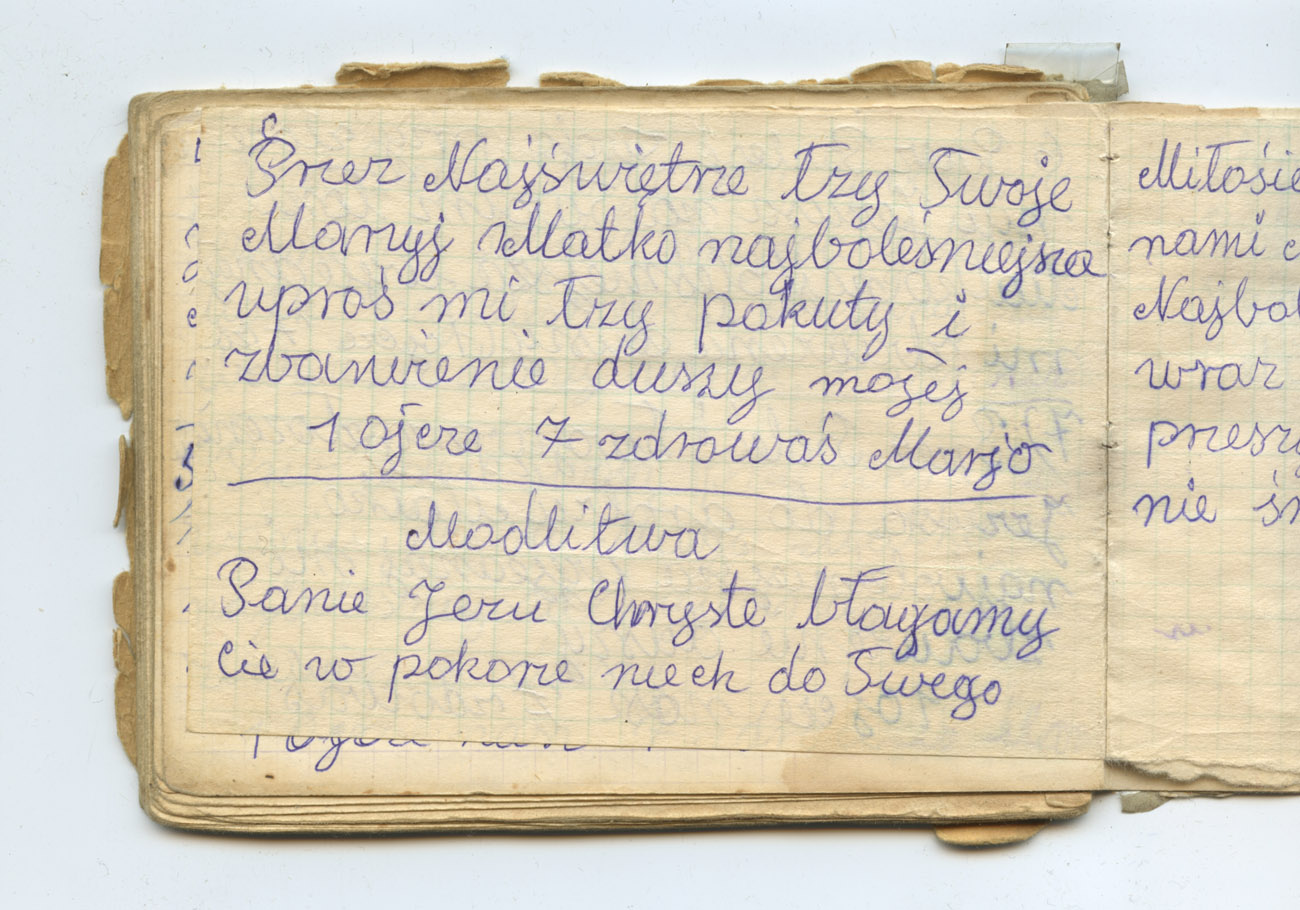 Przez Najświętrze Łzy Twoje
Maryj Matko najboleśniejsza
uproś mi Łzy pokuty i
zbawienie duszy mojej
1 Ojcze 7 zdrowaś Marjo
Modlitwa
Panie Jezu Chryste błagamy
Cie w pokorze niech do Twego
Miłosie
nami
Najbol
wraz
przeszy
nie